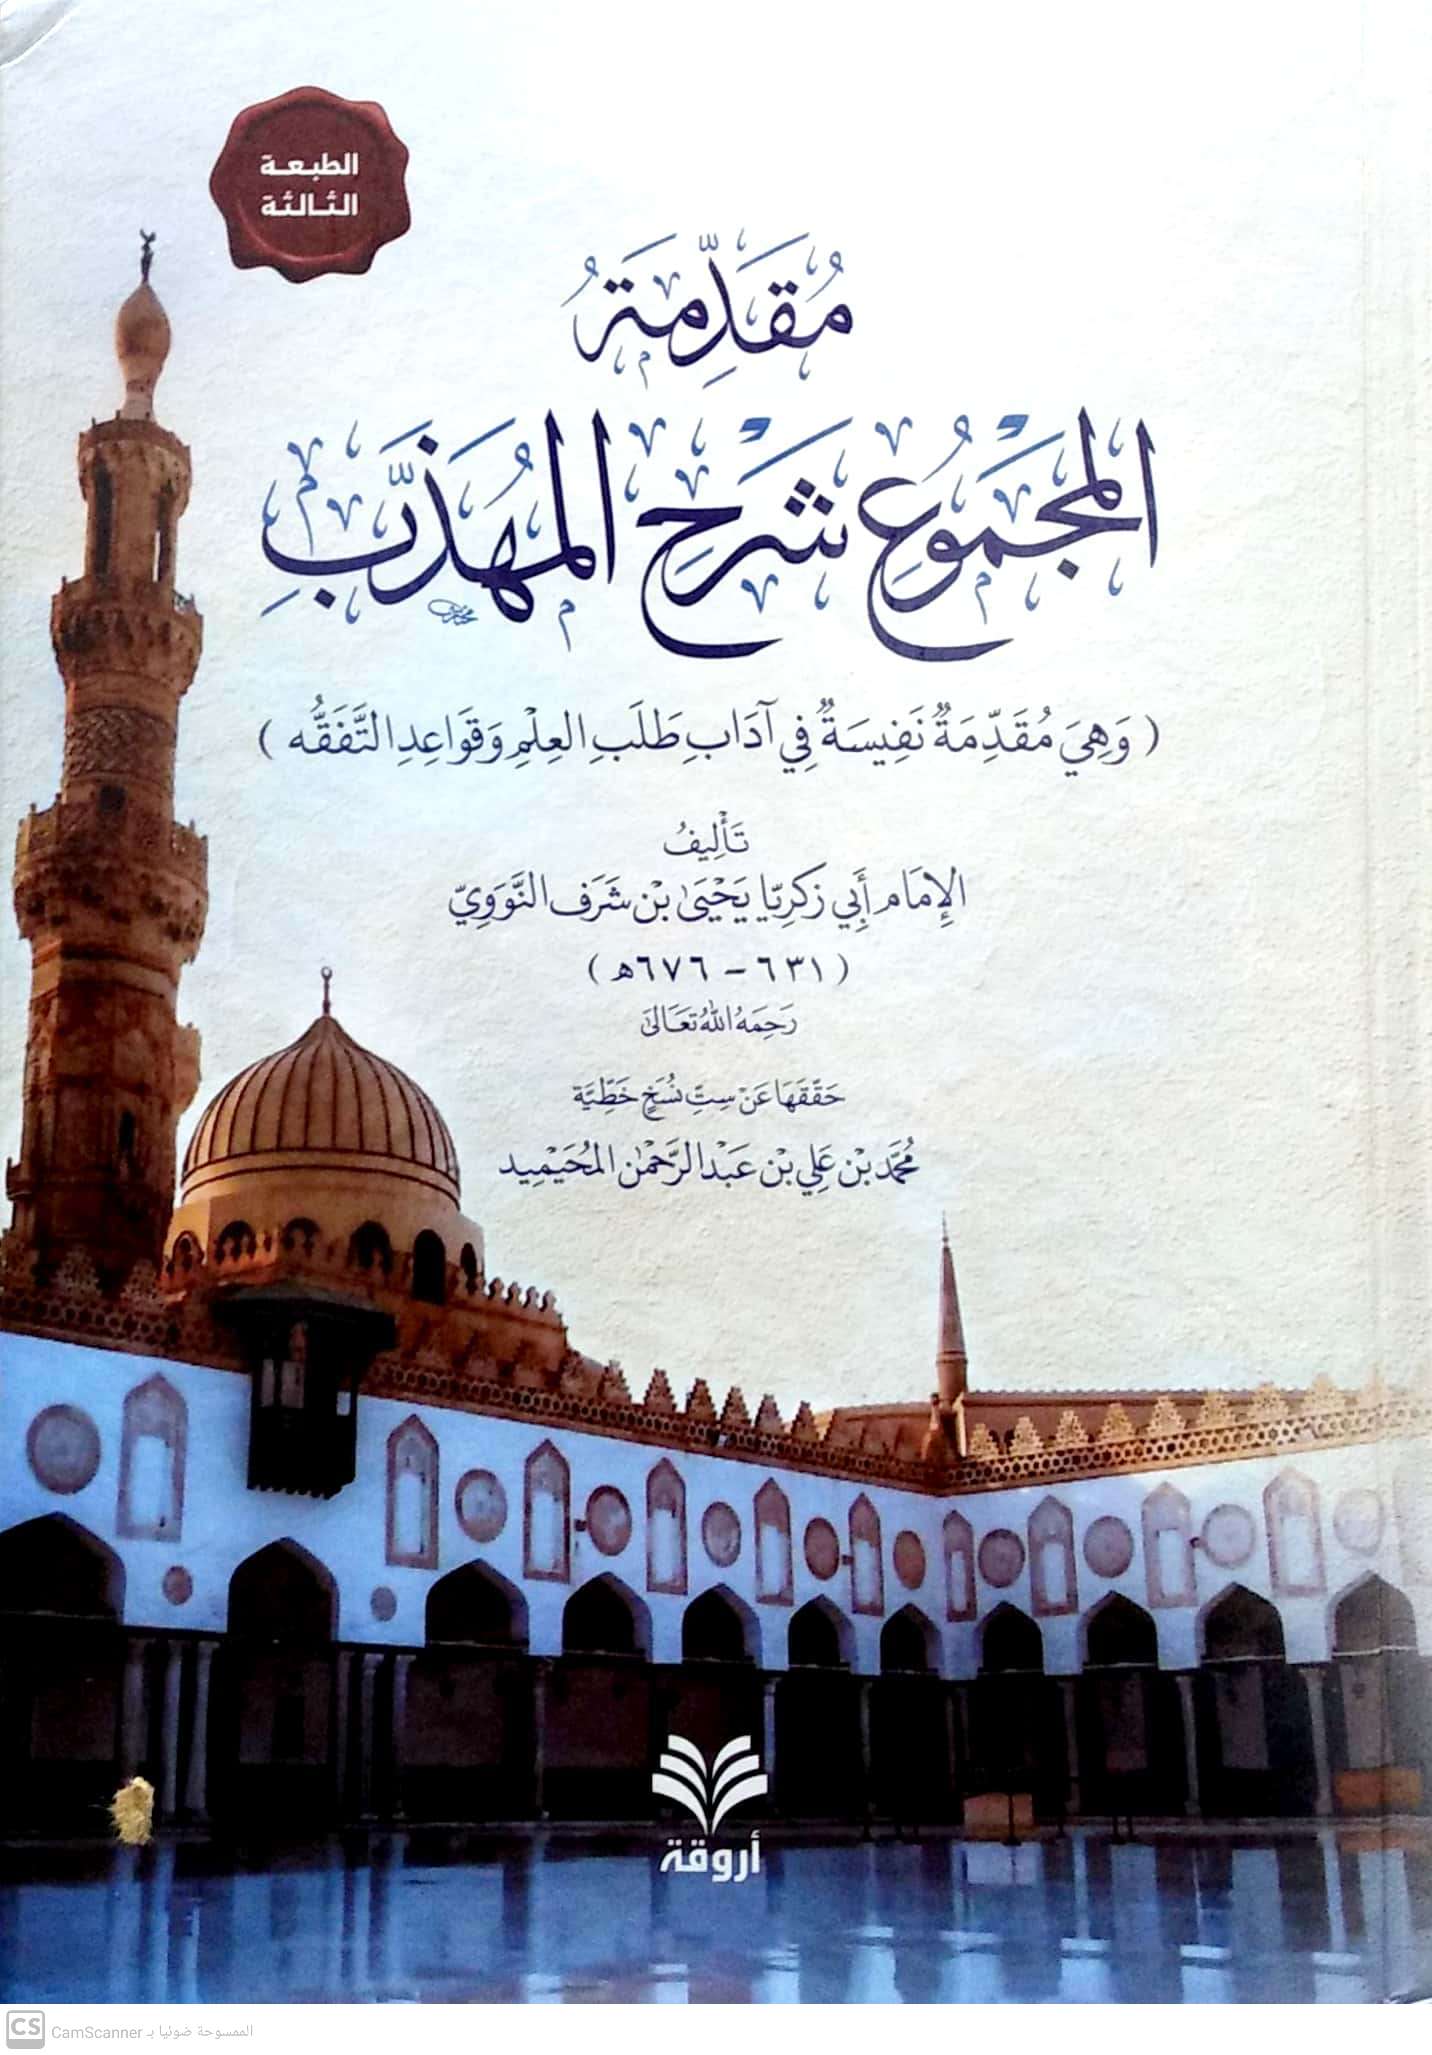 الطبعة
الثالثة
مُقَدِّمَةُ
المَجْمُوعِ شَرْحِ المُهَذَّبِ
( وَهِيَ مُقَدِّمَةٌ نَفِيسَةٌ فِي آدَابِ طَلَبِ العِلْمِ وَقَوَاعِدِ التَّفَقُّه )
تَأْلِيفُ
الإِمَام أَبِي زَكَرِيّا يَحْيَىٰ بْن شَرَف النَّوَوِيّ
( ٦٣١ - ٦٧٦ هـ )
رَحِمَهُ اللهُ تَعَالَىٰ
حَقَّقَهَا عَنْ سِتِّ نُسَخٍ خَطِّيَّة
مُحَمَّد بْن عَلِي بْن عَبْد الرَّحْمٰن المُحَيْمِيد
أروقة
CS الممسوحة ضوئيا بـ CamScanner